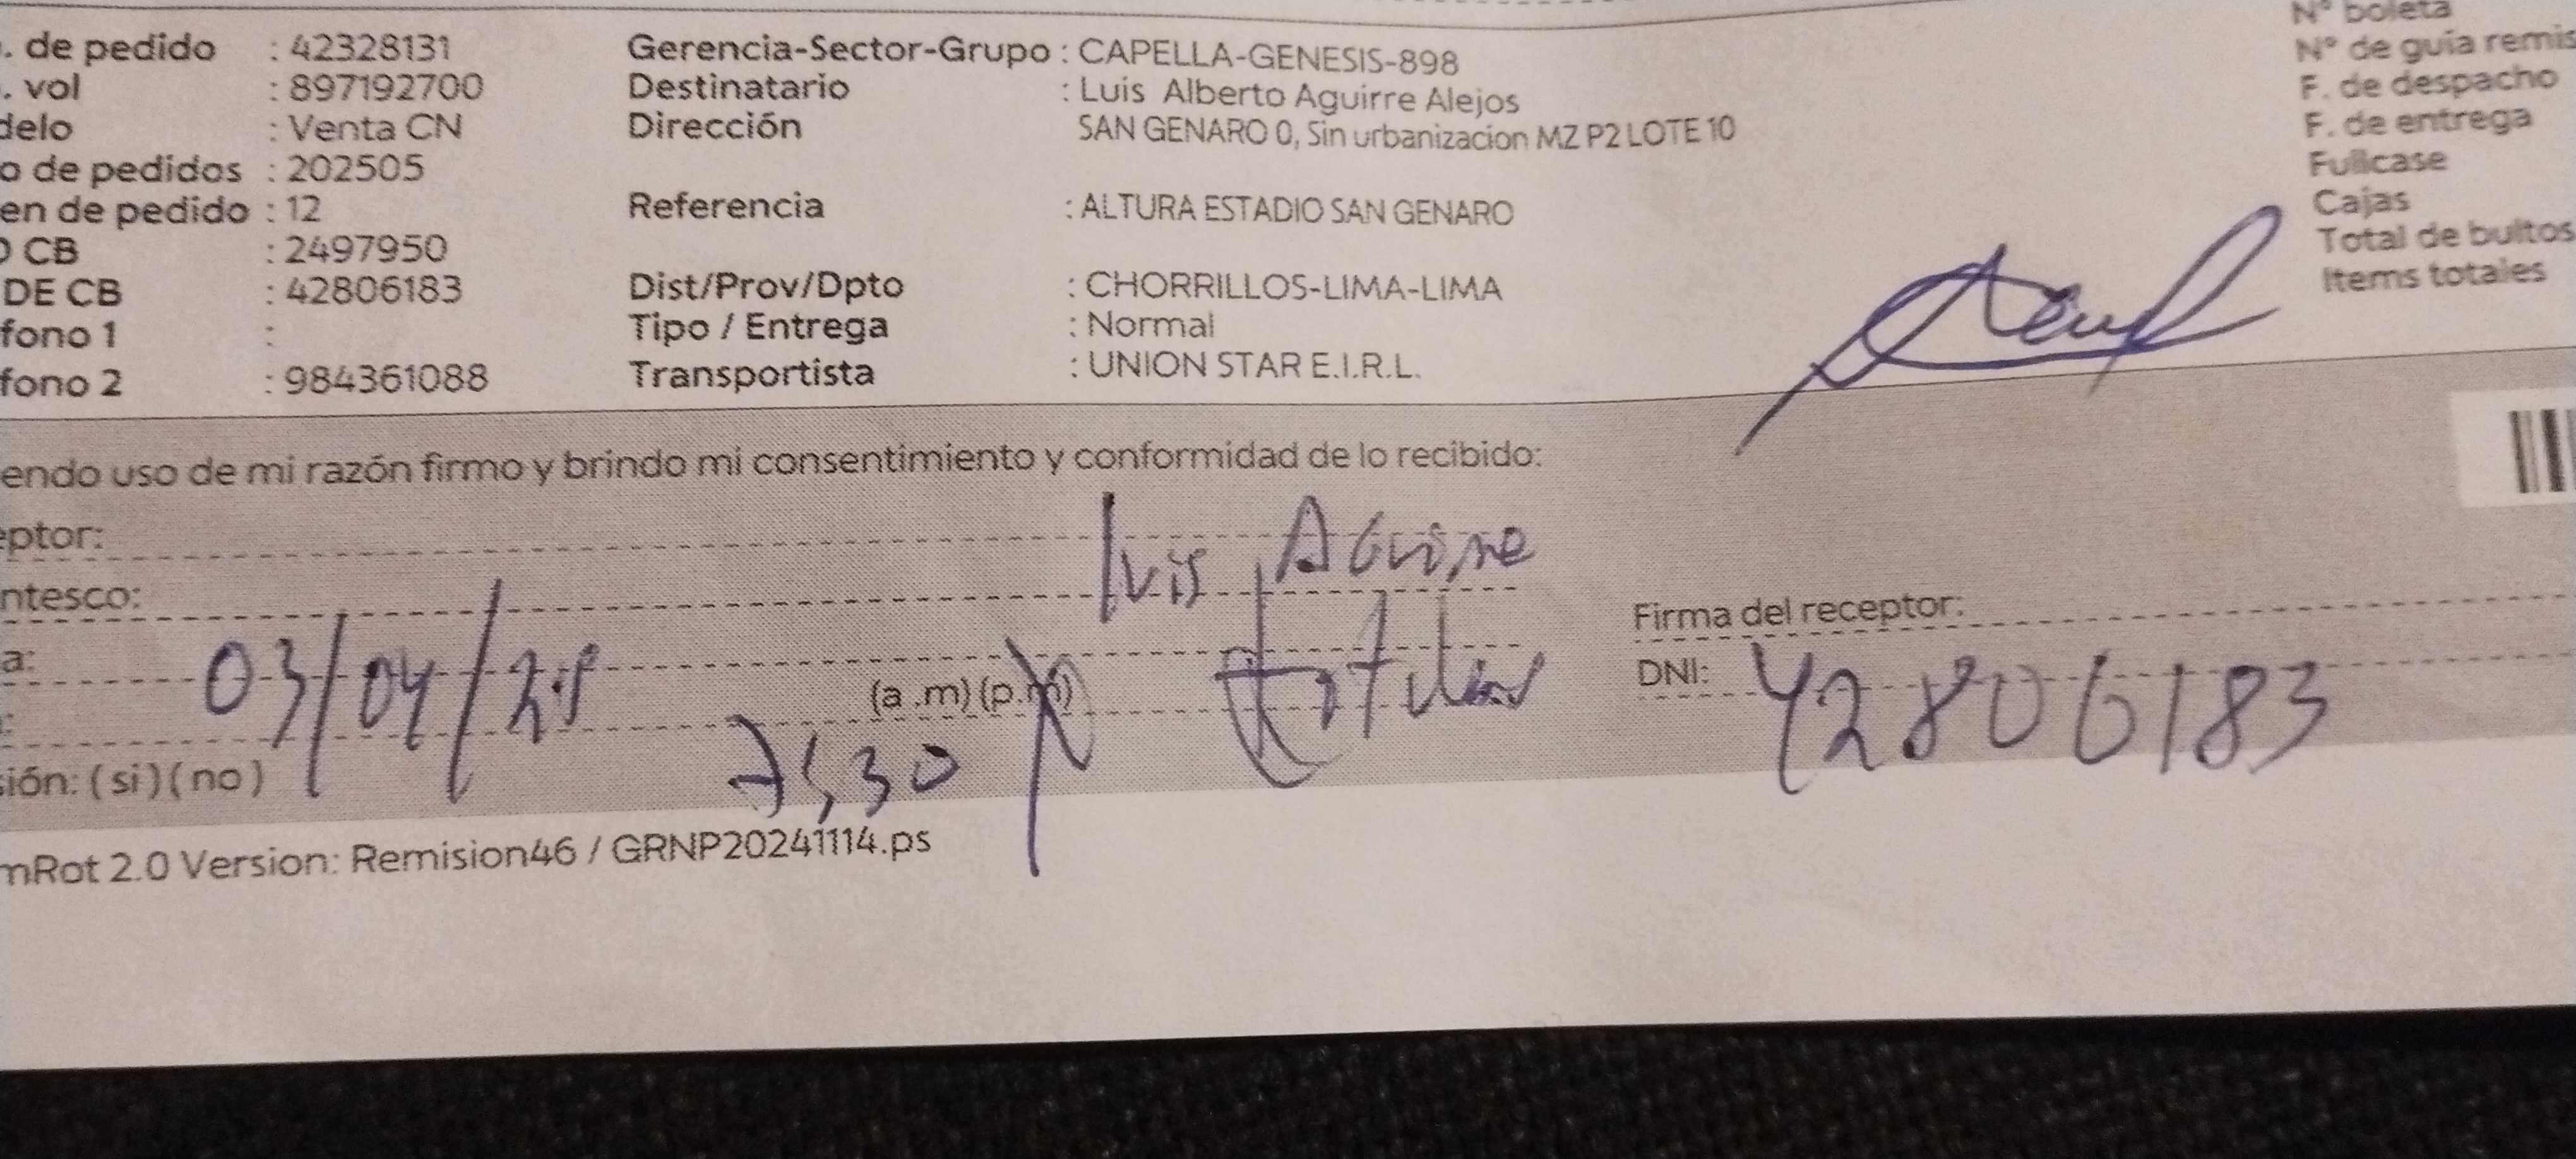 . de pedido : 42328131 Gerencia-Sector-Grupo : CAPELLA-GENESIS-898 N° boleta
. vol : 897192700 Destinatario : Luis Alberto Aguirre Alejos N° de guía remis
delo : Venta CN Dirección SAN GENARO 0, Sin urbanizacion MZ P2 LOTE 10 F. de despacho
o de pedidos : 202505 F. de entrega
en de pedido : 12 Referencia : ALTURA ESTADIO SAN GENARO Fullcase
O CB : 2497950 Cajas
DE CB : 42806183 Dist/Prov/Dpto : CHORRILLOS-LIMA-LIMA Total de bultos
fono 1 : Tipo / Entrega : Normal Items totales
fono 2 : 984361088 Transportista : UNION STAR E.I.R.L.
endo uso de mi razón firmo y brindo mi consentimiento y conformidad de lo recibido:
eptor: luis Aguirre
ntesco: Firma del receptor:
a: 03/04/25 titular DNI: 42806183
: (a .m) (p.m)
7:30 p
sión: ( si ) ( no )
mRot 2.0 Version: Remision46 / GRNP20241114.ps